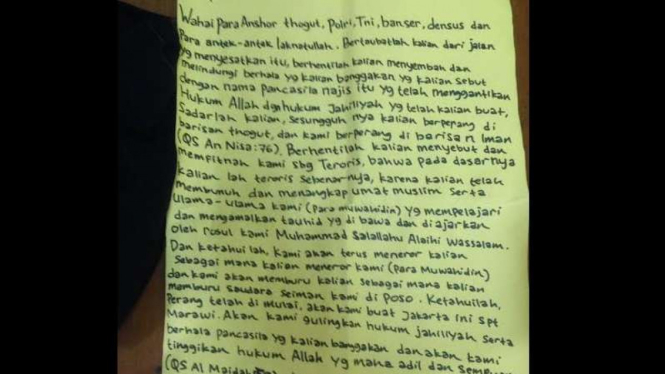 Wahai Para Anshor thogut, Polri, Tni, banser, densus dan
Para antek-antek laknatullah. Bertaubatlah kalian dari jalan
yg menyesatkan itu, berhentilah kalian menyembah dan
melindungi berhala yg kalian banggakan yg kalian sebut
dengan nama pancasila najis itu yg telah menggantikan
Hukum Allah dgn hukum Jahiliyah yg telah kalian buat,
Sadarlah kalian, Sesungguh nya kalian berperang di
barisan thogut, dan kami berperang di barisan Iman
(QS An Nisa:76). Berhentilah kalian menyebut dan
mempitnah kami sbg Teroris, bahwa pada dasarnya
kalian lah teroris sebenarnya, karena kalian telah
membunuh dan menangkap umat muslim Serta
Ulama-ulama kami (Para muwahidin) yg mempelajari
dan mengamalkan tauhid yg di bawa dan di ajarkan
oleh rosul kami Muhammad Salallahu Alaihi Wassalam.
Dan ketahui lah, kami akan terus meneror kalian
Sebagai mana kalian meneror kami (Para Muwahidin)
dan kami akan memburu kalian sebagai mana kalian
memburu saudara seiman kami di POSO. Ketahuilah,
Perang telah di mulai, akan kami buat Jakarta ini Spt
Marawi. Akan kami gulingkan hukum jahiliyah serta
berhala pancasila yg kalian banggakan dan akan kami
tinggikan hukum Allah yg maha adil dan
(QS Al